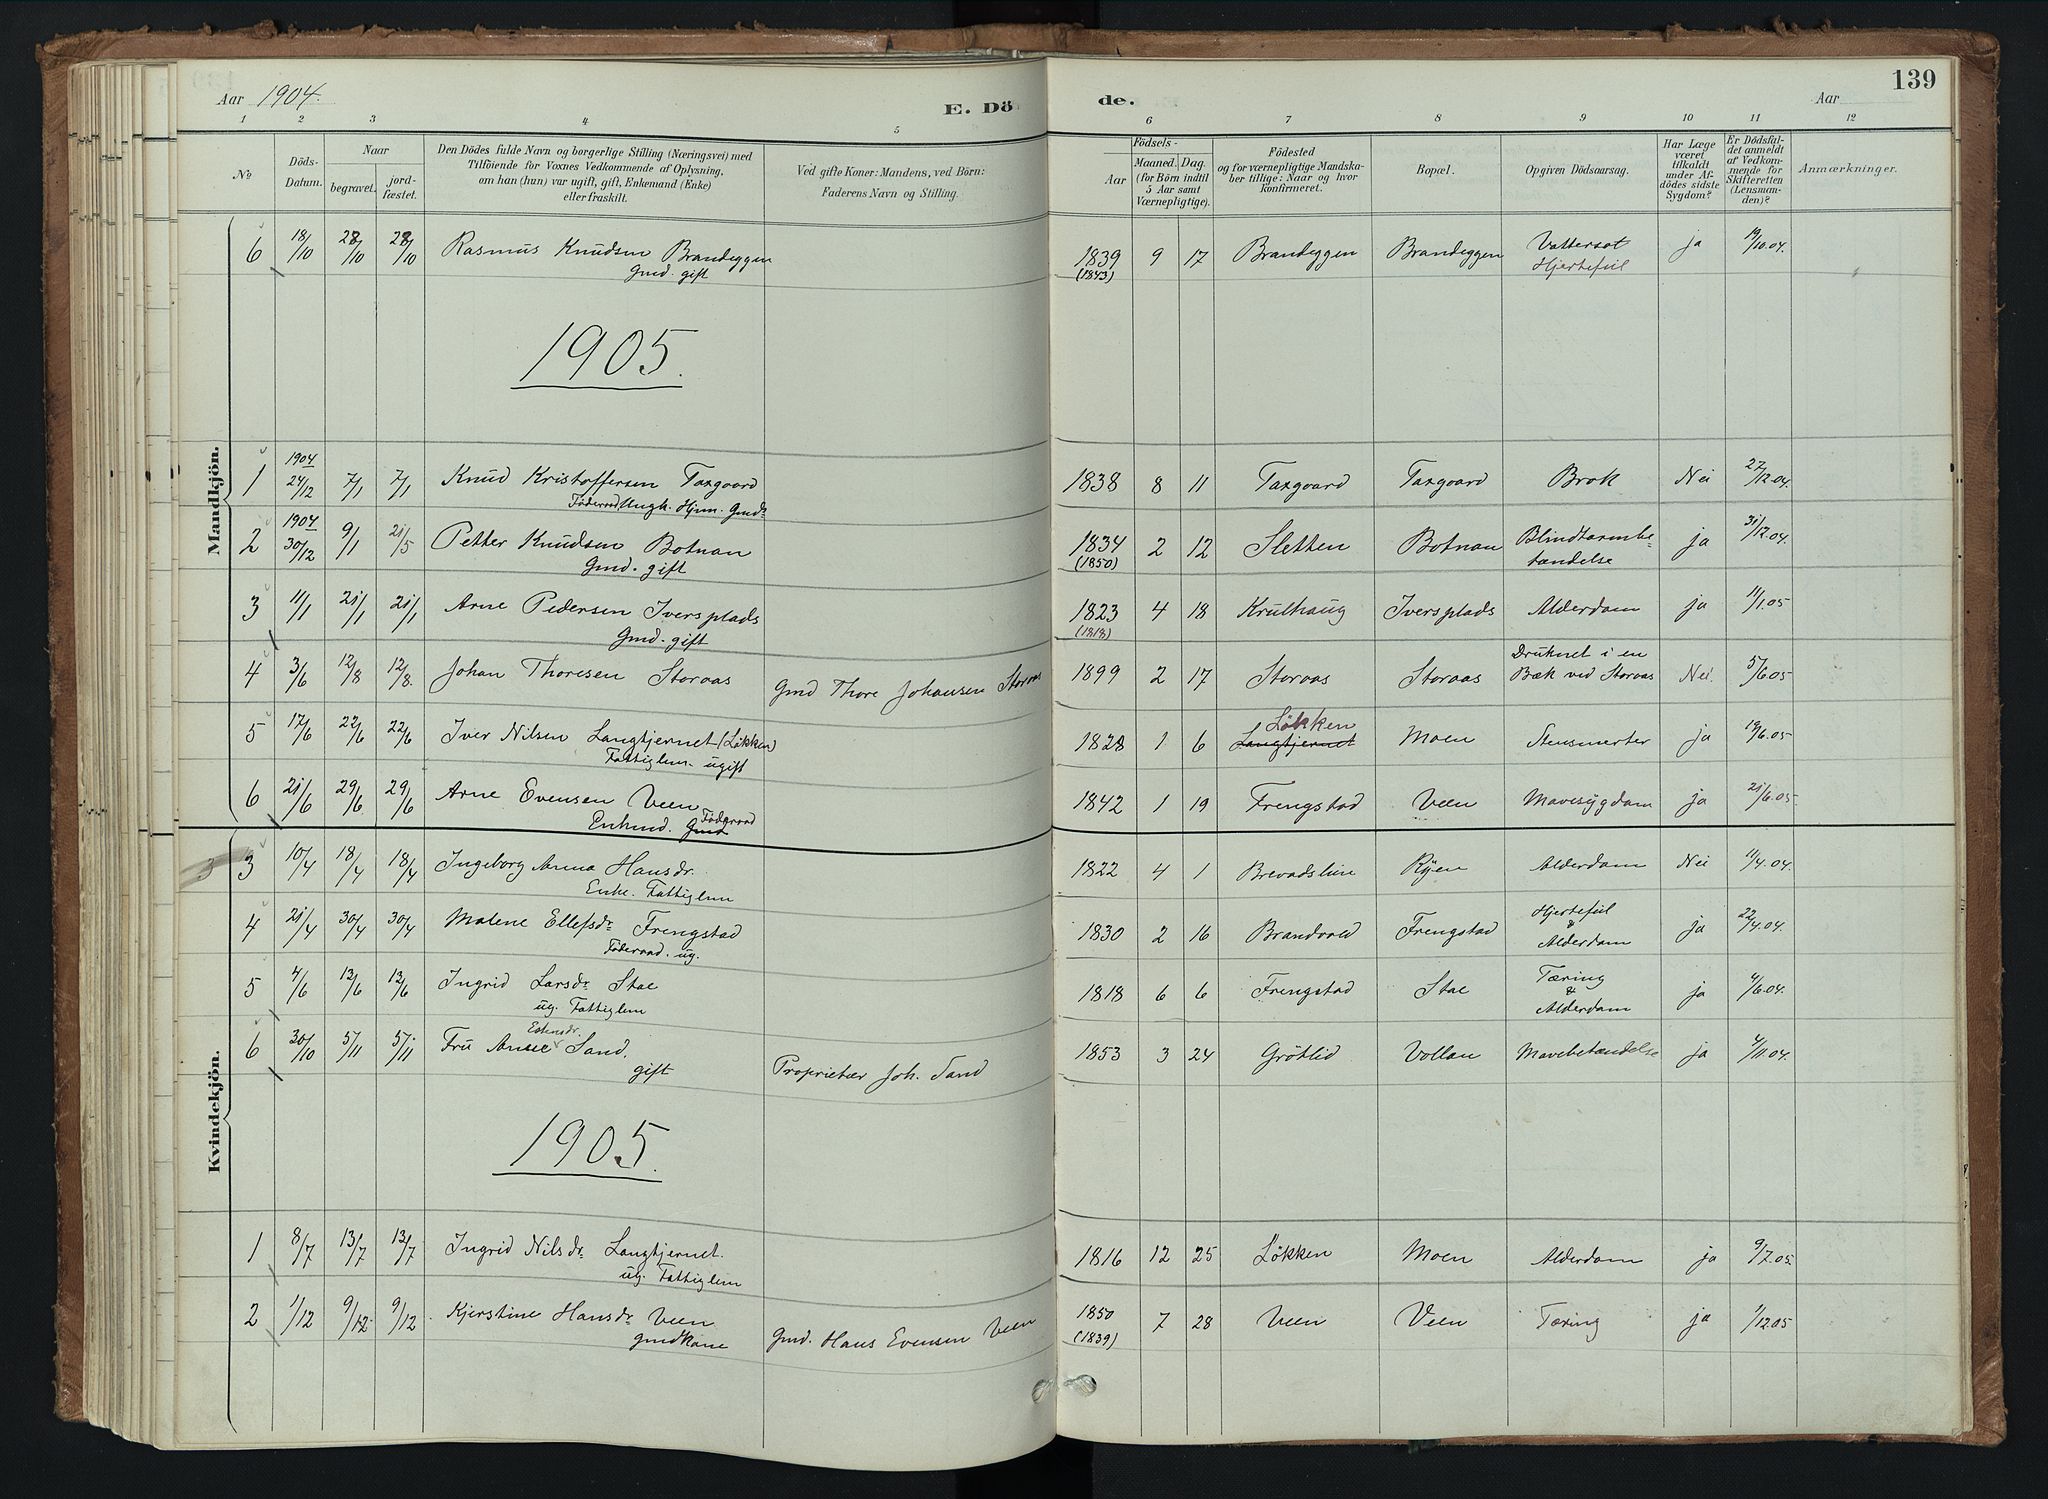 Aar 1904.
E. Dö
de.
Aar
139
1 2 3 4 5 6 7 8 9 10 11 12
No
Döds-
Datum.
Naar
begravet.
jord-
fæstet.
Den Dödes fulde Navn og borgerlige Stilling (Næringsvei) med
Tilföiende for Voxnes Vedkommende af Oplysning,
om han (hun) var ugift, gift, Enkemand (Enke)
eller fraskilt.
Ved gifte Koner: Mandens, ved Börn:
Faderens Navn og Stilling.
Födsels-
Aar
Maaned. Dag.
(for Börn indtil
5 Aar samt
Værnepligtige).
Födested
og for værnepligtige Mandska-
ber tillige: Naar og hvor
konfirmeret.
Bopæl.
Opgiven Dödsaarsag.
Har Læge
været
tilkaldt
under Af-
dödes sidste
Sygdom?
Er Dödsfal-
det anmeldt
af Vedkom-
mende for
Skifteretten
(Lensman-
den)?
Anmærkninger.
Mandkjön.
6 18/10 28/10 28/10 Rasmus Knudsen Brandeggen
Gmd. gift
1839 9 17 Brandeggen Brandeggen Vattersot ja 19/10.04.
(1843) Hjertefeil
1905.
1 1904 24/12 7/1 7/1 Knud Kristoffersen Taxgaard
Föderaad Hjem. Gmds
1838 8 11 Taxgaard Taxgaard Brok Nei 27/12.04.
2 1904 30/12 9/1 21/5 Petter Knudsen Botnan
Gmd. gift
1834 2 12 Sletten Botnan Blindtarmbe- ja 31/12.04.
(1850) tændelse
3 11/1 21/1 21/1 Arne Pedersen Iversplads
Gmd. gift
1823 4 18 Krulhaug Iversplads Alderdam ja 11/1.05
(1818)
4 3/6 12/8 12/8. Johan Thoresen Storaas Gmd Thore Johansen Storaas
1899 2 17 Storaas Storaas Druknet i en Nei. 5/6.05
Bæk ved Storaas
5 17/6 22/6 22/6 Iver Nilsen Langtjernet (Løkken)
Fattiglem. ugift
1828 1 6 Løkken Moen Stensmerter ja 19/6.05
Langtjernet
6 21/6 29/6 29/6 Arne Evensen Veen
Enkmd. Gmd Föderaad
1842 1 19 Frengstad Veen Mavesygdam ja 21/6.05.
Kvindekjön.
3 3 10/4 18/4 18/4 Ingeborg Anna Hansdr.
Enke. Fattiglem
1822 4 1 Ryen Alderdam Nei 11/4.04.
4 21/4 30/4 30/4 Malene Ellefsdr Frengstad
Föderaad. ug.
1830 2 16 Brandvold Frengstad Hjertefeil & Alderdam ja 22/4.04.
5 4/6 13/6 13/6 Ingrid Larsdr Stae
ug. Fattiglem
1818 6 6 Frengstad Stae Tæring & Alderdam ja 4/6.04.
6 30/10 5/11 5/11 Fru Anne Sand.
gift Proprietær Joh. Sand
1853 3 24 Grötlid Vollan Mavebetændelse ja 4/11.04.
1905.
1 8/7 13/7 13/7 Ingrid Nilsdr Langtjernet.
ug. Fattiglem
1816 12 25 Løkken Moen Alderdam ja 9/7.05.
2 1/12 9/12 9/12 Kjerstine Hansdr Veen
gmdkone Gmd. Hans Evensen Veen
1850 7 28 Veen Veen Tæring ja 1/12.05
(1839)